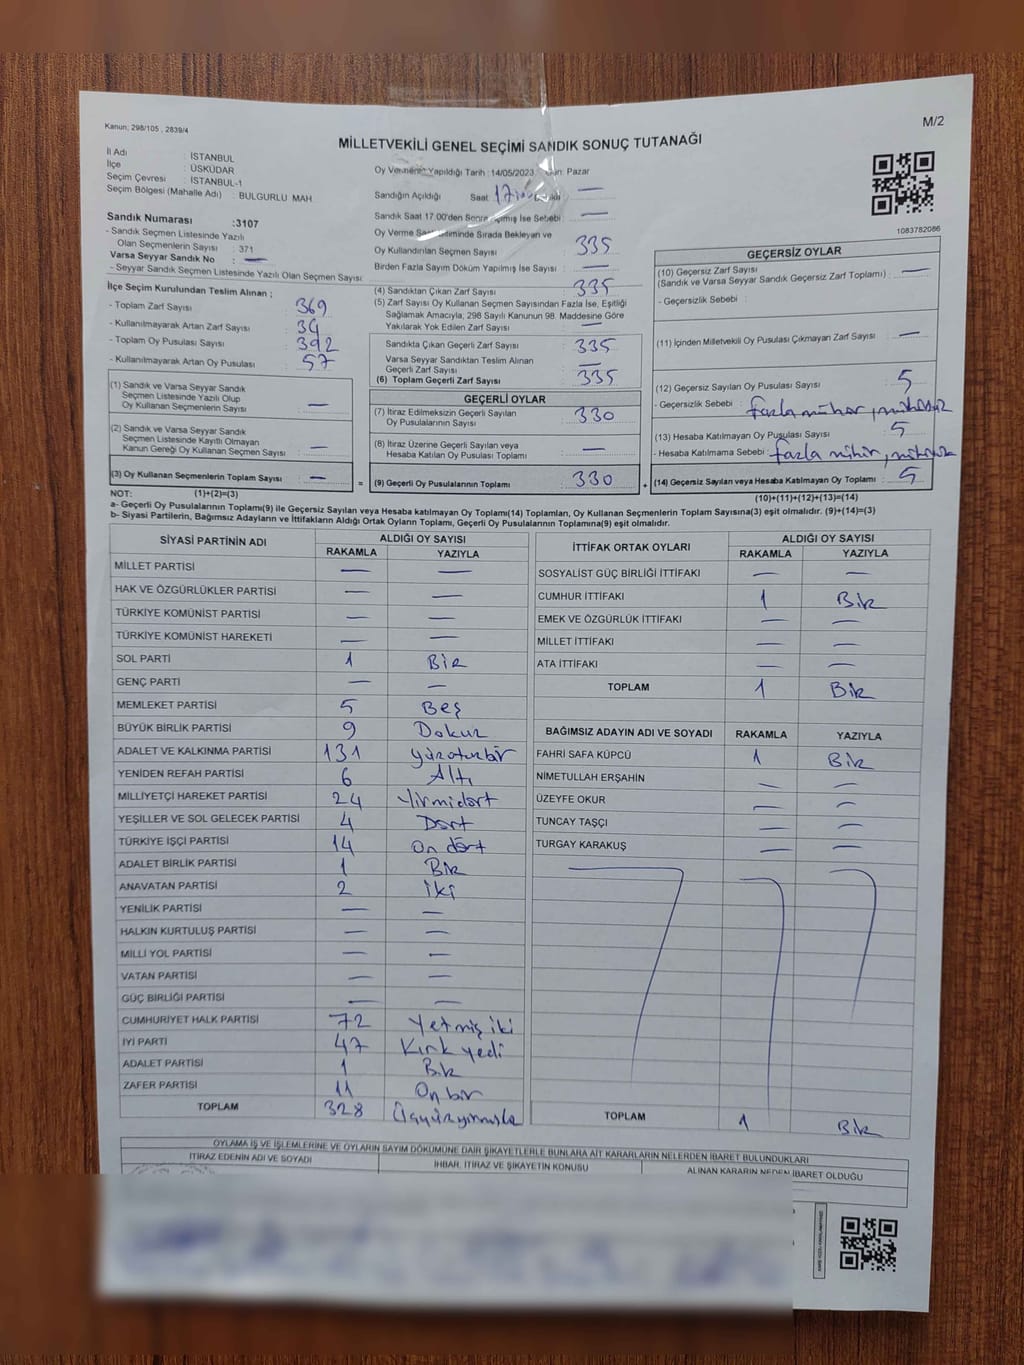 Kanun; 298/105 , 2839/4
M/2
MİLLETVEKİLİ GENEL SEÇİMİ SANDIK SONUÇ TUTANAĞI
İl Adı : İSTANBUL
İlçe : ÜSKÜDAR
Seçim Çevresi : İSTANBUL-1
Seçim Bölgesi (Mahalle Adı) : BULGURLU MAH
Sandık Numarası :3107
- Sandık Seçmen Listesinde Yazılı
Olan Seçmenlerin Sayısı : 371
Varsa Seyyar Sandık No : —
- Seyyar Sandık Seçmen Listesinde Yazılı Olan Seçmen Sayısı:
İlçe Seçim Kurulundan Teslim Alınan ;
- Toplam Zarf Sayısı : 369
- Kullanılmayarak Artan Zarf Sayısı : 34
- Toplam Oy Pusulası Sayısı : 392
- Kullanılmayarak Artan Oy Pusulası : 57
(1) Sandık ve Varsa Seyyar Sandık
Seçmen Listesinde Yazılı Olup
Oy Kullanan Seçmenlerin Sayısı : —
(2) Sandık ve Varsa Seyyar Sandık
Seçmen Listesinde Kayıtlı Olmayan
Kanun Gereği Oy Kullanan Seçmen Sayısı : —
(3) Oy Kullanan Seçmenlerin Toplam Sayısı : — =
Oy Vermenin Yapıldığı Tarih : 14/05/2023 Gün: Pazar
Sandığın Açıldığı Saat —
Sandık Saat 17.00'den Sonra Açılmış İse Sebebi : —
Oy Verme Saati Bitiminde Sırada Bekleyen ve
Oy Kullandırılan Seçmen Sayısı : 335
Birden Fazla Sayım Döküm Yapılmış İse Sayısı : —
(4) Sandıktan Çıkan Zarf Sayısı : 335
(5) Zarf Sayısı Oy Kullanan Seçmen Sayısından Fazla İse, Eşitliği
Sağlamak Amacıyla, 298 Sayılı Kanunun 98. Maddesine Göre
Yakılarak Yok Edilen Zarf Sayısı : —
Sandıkta Çıkan Geçerli Zarf Sayısı : 335
Varsa Seyyar Sandıktan Teslim Alınan
Geçerli Zarf Sayısı : —
(6) Toplam Geçerli Zarf Sayısı : 335
GEÇERLİ OYLAR
(7) İtiraz Edilmeksizin Geçerli Sayılan
Oy Pusulasının Sayısı : 330
(8) İtiraz Üzerine Geçerli Sayılan veya
Hesaba Katılan Oy Pusulası Toplamı : —
(9) Geçerli Oy Pusulalarının Toplamı : 330 +
1083782086
GEÇERSİZ OYLAR
(10) Geçersiz Zarf Sayısı
(Sandık ve Varsa Seyyar Sandık Geçersiz Zarf Toplamı) : —
- Geçersizlik Sebebi :
(11) İçinden Milletvekili Oy Pusulası Çıkmayan Zarf Sayısı : —
(12) Geçersiz Sayılan Oy Pusulası Sayısı : 5
- Geçersizlik Sebebi : fazla mühür, mühürsüz
(13) Hesaba Katılmayan Oy Pusulası Sayısı : 5
- Hesaba Katılmama Sebebi : fazla mühür,
(14) Geçersiz Sayılan veya Hesaba Katılmayan Oy Toplamı : 5
NOT: (1)+(2)=(3)
(10)+(11)+(12)+(13)=(14)
a- Geçerli Oy Pusulalarının Toplamı(9) ile Geçersiz Sayılan veya Hesaba katılmayan Oy Toplamı(14) Toplamları, Oy Kullanan Seçmenlerin Toplam Sayısına(3) eşit olmalıdır. (9)+(14)=(3)
b- Siyasi Partilerin, Bağımsız Adayların ve İttifakların Aldığı Ortak Oyların Toplamı, Geçerli Oy Pusulalarının Toplamına(9) eşit olmalıdır.
SİYASİ PARTİNİN ADI ALDIĞI OY SAYISI
RAKAMLA YAZIYLA
MİLLET PARTİSİ — —
HAK VE ÖZGÜRLÜKLER PARTİSİ — —
TÜRKİYE KOMÜNİST PARTİSİ — —
TÜRKİYE KOMÜNİST HAREKETİ — —
SOL PARTİ 1 Bir
GENÇ PARTİ — —
MEMLEKET PARTİSİ 5 Beş
BÜYÜK BİRLİK PARTİSİ 9 Dokuz
ADALET VE KALKINMA PARTİSİ 131 yüzotuzbir
YENİDEN REFAH PARTİSİ 6 Altı
MİLLİYETÇİ HAREKET PARTİSİ 24 Yirmidört
YEŞİLLER VE SOL GELECEK PARTİSİ 4 Dört
TÜRKİYE İŞÇİ PARTİSİ 14 On dört
ADALET BİRLİK PARTİSİ 1 Bir
ANAVATAN PARTİSİ 2 iki
YENİLİK PARTİSİ — —
HALKIN KURTULUŞ PARTİSİ — —
MİLLİ YOL PARTİSİ — —
VATAN PARTİSİ — —
GÜÇ BİRLİĞİ PARTİSİ — —
CUMHURİYET HALK PARTİSİ 72 Yetmiş iki
İYİ PARTİ 47 Kırk yedi
ADALET PARTİSİ 1 Bir
ZAFER PARTİSİ 11 On bir
TOPLAM 328
İTTİFAK ORTAK OYLARI ALDIĞI OY SAYISI
RAKAMLA YAZIYLA
SOSYALİST GÜÇ BİRLİĞİ İTTİFAKI — —
CUMHUR İTTİFAKI 1 Bir
EMEK VE ÖZGÜRLÜK İTTİFAKI — —
MİLLET İTTİFAKI — —
ATA İTTİFAKI — —
TOPLAM 1 Bir
BAĞIMSIZ ADAYIN ADI VE SOYADI RAKAMLA YAZIYLA
FAHRİ SAFA KÜPCÜ 1 Bir
NİMETULLAH ERŞAHİN — —
ÜZEYFE OKUR — —
TUNCAY TAŞÇI — —
TURGAY KARAKUŞ — —
TOPLAM 1 Bir
OYLAMA İŞ VE İŞLEMLERİNE VE OYLARIN SAYIM DÖKÜMÜNE DAİR ŞİKAYETLERLE BUNLARA AİT KARARLARIN NELERDEN İBARET BULUNDUKLARI
İTİRAZ EDENİN ADI VE SOYADI İHBAR, İTİRAZ VE ŞİKAYETİN KONUSU ALINAN KARARIN NEDEN İBARET OLDUĞU